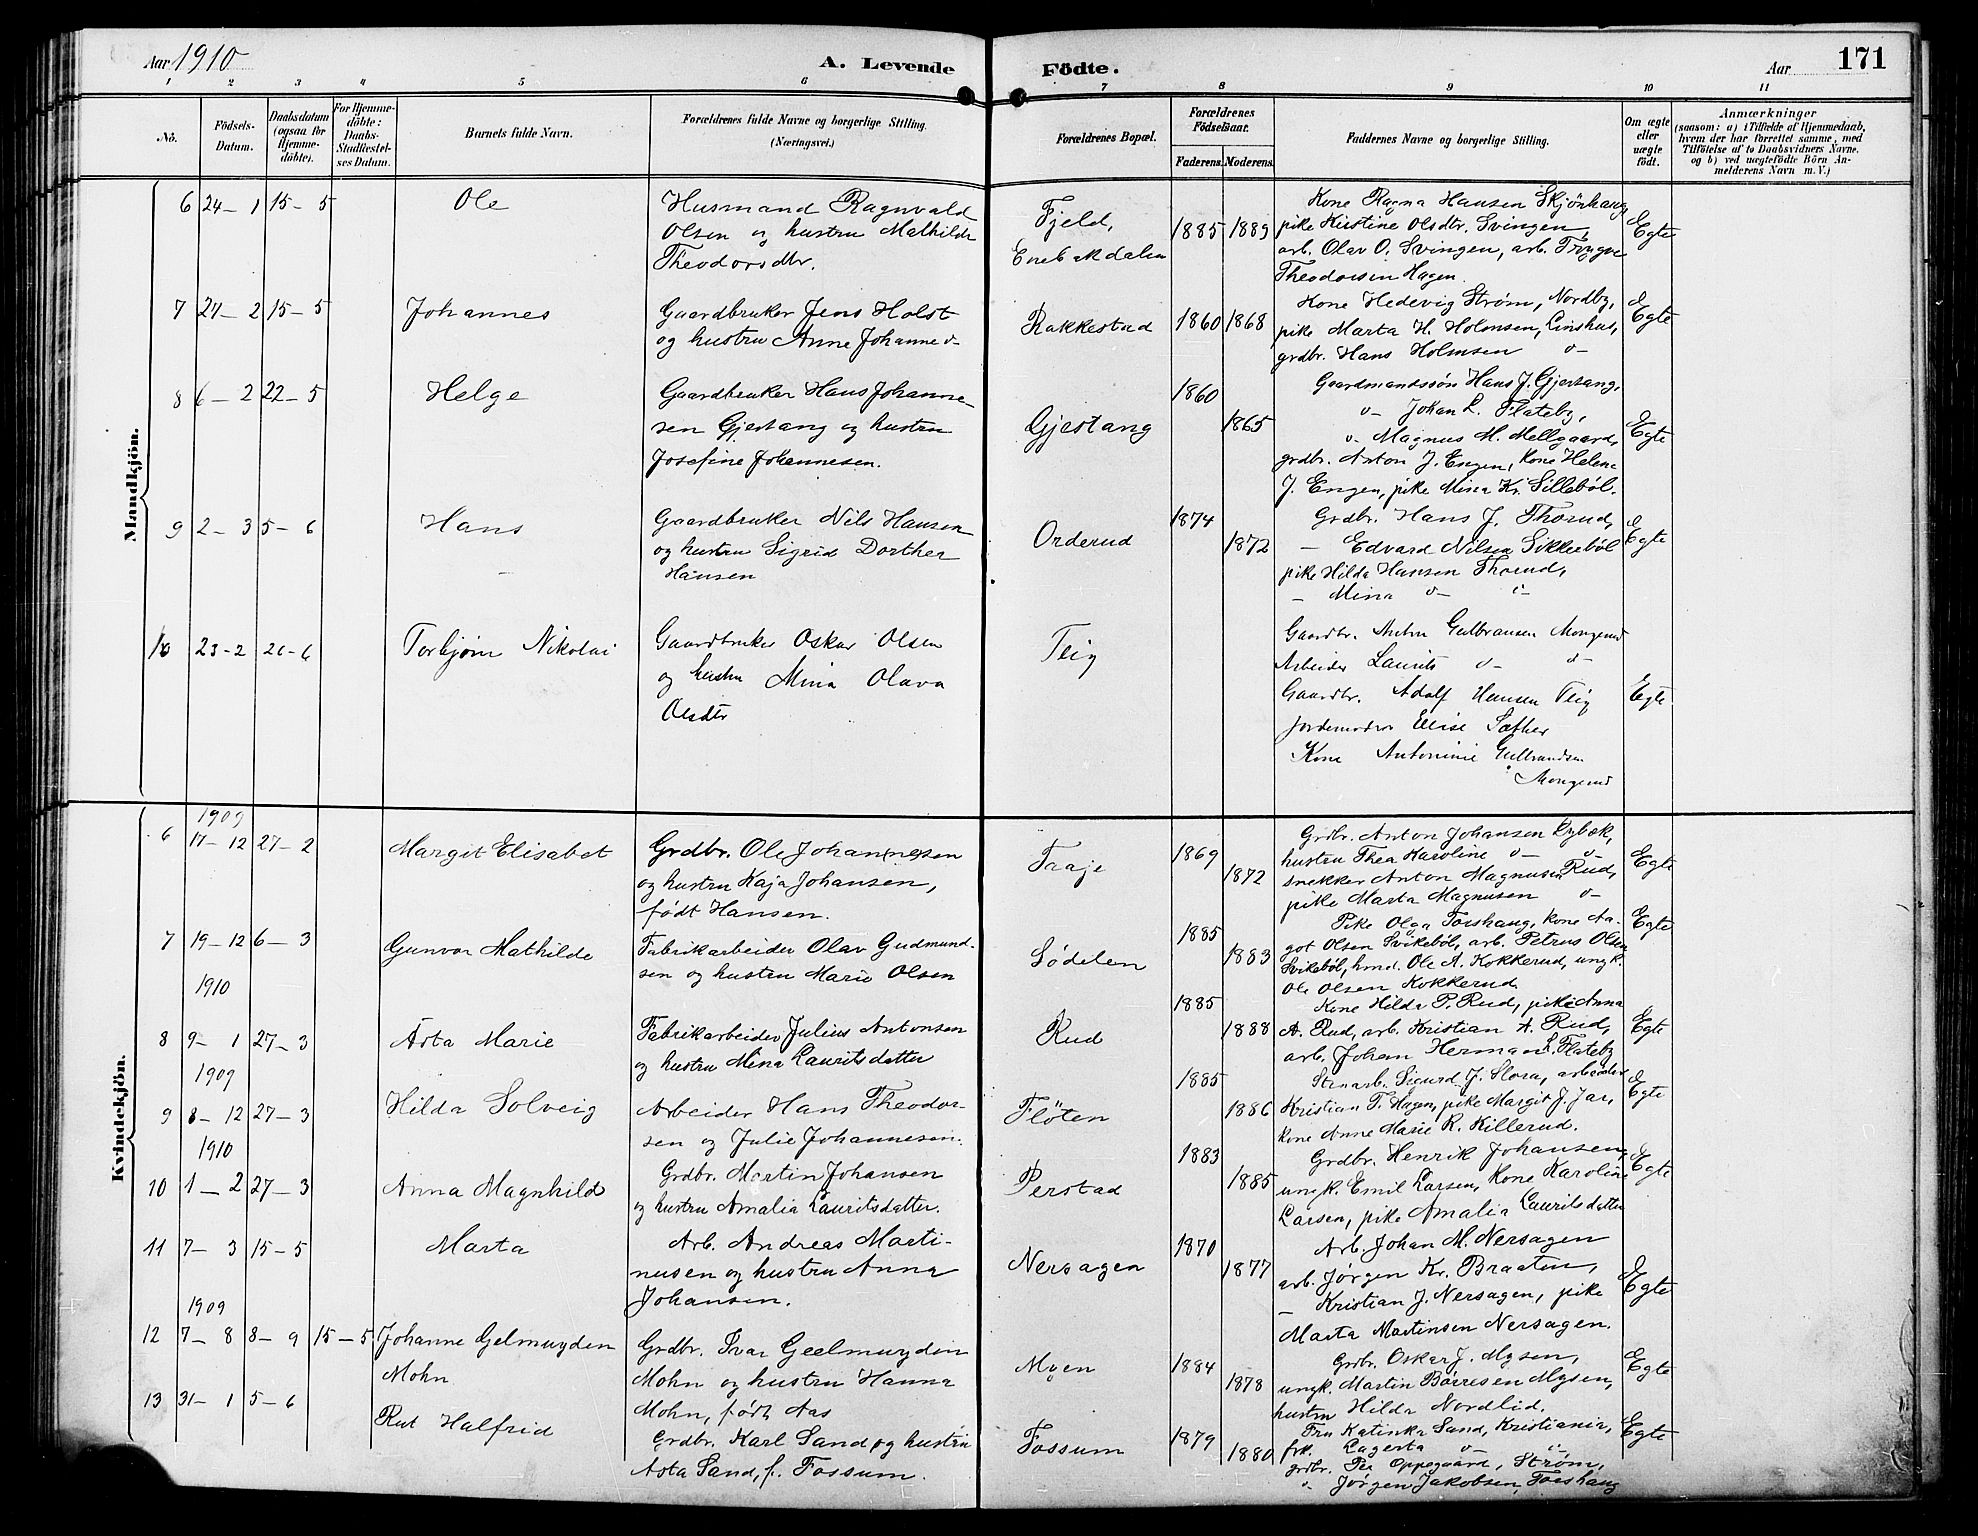 Aar 1910
A. Levende Födte.
Aar
171
1 2 3 4 5 6 7 8 9 10 11
Nö.
Födsels-Datum.
Daabsdatum (ogsaa for Hjemme-döbte).
For Hjemme-döbte: Daabs-Stadfæstel-ses Datum.
Barnets fulde Navn.
Forældrenes fulde Navne og borgerlige Stilling. (Næringsvei.)
Forældrenes Bopæl.
Forældrenes Födselsaar.
Faderens. Moderens.
Faddernes Navne og borgerlige Stilling.
Om ægte eller uægte födt.
Anmærkninger
(saasom: a) i Tilfælde af Hjemmedaab,
hvem der har forrettet samme, med
Tilföielse af to Daabsvidners Navne.
og b) ved uægtefödte Börn An-
melderens Navn m. V.)
Mandkjön.
6 24 – 1 15 – 5 Ole
Husmand Ragnvald
Olsen og hustru Mathilde
Theodorsdtr.
Fjeld,
Enebakdalen
1885 1889
Kone Ragna Hansen Skjönhaug
pike Kristine Olsdtr. Svingen,
arb. Olav O. Svingen, arb. Trygve
Theodorsen Hagen.
Egte
7 27 – 2 15 – 5 Johannes
Gaardbruker Jens Holst
og hustru Anne Johanne o-
Rakkestad
1860 1868
Kone Hedevig Strøm, Nordby,
pike Marta H. Holmsen, Linshus,
grdbr. Hans Holmsen o-
Egte
8 6 – 2 22 – 5 Helge
Gaardbruker Hans Johanne-
sen Gjestang og hustru
Josefine Johannesen.
Gjestang
1860
1865
Gaardmandssön Hans J. Gjestang,
o- Johan L. Flateby,
o- Magnus M. Mellgaard,
grdbr. Anton J. Engen, Kone Helene
J. Engen, pike Mina Kr. Sillebøl.
Egte
9 2 – 3 5 – 6 Hans
Gaardbruker Nils Hansen
og hustru Sigrid Dorthea
Hansen
Orderud
1874
1872
Grdbr. Hans J. Thorud,
– Edvard Nilsen Sikkebøl
pike Hilda Hansen Thorud,
– Mina o- o-
Egte
10 23 – 2 26 – 6 Torbjørn Nikolai
Gaardbruker Oskar Olsen
og hustru Mina Olava
Olsdtr
Teig
Gaardbr. Anton Gulbransen Mongerud
Arbeider Laurits o- o-
Gaardbr. Adolf Hansen Teig
Jordemoder Elise Sæther
Kone Antoninie Gulbrandsen
Mongerud
Egte
Kvindekjön.
1909
6 17 – 12 27 – 2 Margit Elisabet
Grdbr. Ole Johan(ne)sen
og hustru Kaja Johansen,
født Hansen.
Traaje
1869
1872
Grdbr. Anton Johansen Rybæk,
hustru Thea Karoline o- o-
snekker Anton Magnusen Rud,
pike Marta Magnusen o-
Egte
7 19 – 12 6 – 3 Gunvor Mathilde
Fabrikarbeider Olav Gudmund-
sen og hustru Marie Olsen
Södelen
1885
1883
Pike Olga Torshaug, kone Aa-
got Olsen Svikebøl, arb. Petrus Olsen
Svikebøl, hmd. Ole A. Kokkerud, ungk.
Ole Olsen Kokkerud.
Egte
1910
8 9 – 1 27 – 3 Asta Marie
Fabrikarbeider Julius Antonsen
og hustru Mina Lauritsdatter
Rud
1885
1888
Kone Hilda P. Rud, pike Anna
A. Rud, arb. Kristian A. Rud,
arb. Johan Herman L. Flateby
Egte
1909
9 8 – 12 27 – 3 Hilda Solveig
Arbeider Hans Theodor-
sen og Julie Johannesen.
Flöten
1885
1886
Stenarb. Sigurd J. Slora, arbeider
Kristian T. Hagen, pike Margit J. Jar,
kone Anne Marie R. Killerud.
Egte
1910
10 1 – 2 27 – 3 Anna Magnhild
Grdbr. Martin Johansen
og hustru Amalia Lauritsdatter.
Perstad
1883
1885
Grdbr. Henrik Johansen,
ungk. Emil Larsen, Kone Karoline
Larsen, pike Amalia Lauritsdatter
Egte
11 7 – 3 15 – 5 Marta
Arb. Andreas Marti-
nusen og hustru Anna
Johansen.
Nersagen
1870
1877
Arb. Johan M. Nersagen
arb. Jørgen Kr. Braaten,
– Kristian J. Nersagen, pike
Marta Martinsen Nersagen.
Egte
1909
12 7 – 8 8 – 9 15 – 5 Johanne Gelmuyden
Mohn
Grdbr. Ivar Geelmuyden
Mohn og hustru Hanna
Mohn, født Aas
Myen
1884
1878
Grdbr. Oskar J. Mysen,
ungk. Martin Børresen Mysen,
hustru Hilda Nordlid.
Egte
13 31 – 1 5 – 6 Rut Halfrid
Grdbr. Karl Sand og hustru
Asta Sand, f. Fossum.
Fossum
1879
1880
Fru Katinka Sand, Kristiania,
frk. Lagerta o- o-
grdbr. Per Oppegaard, Strøm,
o- Jørgen Jakobsen, Torshaug
Egte